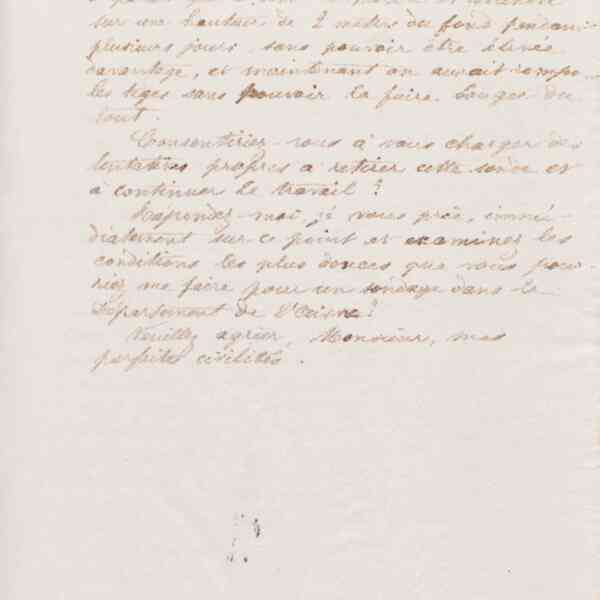 sur une hauteur de 2 mètres du fond pendant
plusieurs jours sans pouvoir être élevée
davantage, et maintenant on aurait rompu
les tiges sans pouvoir la faire bouger du
tout.
Consentiriez-vous à vous charger des
tentatives propres à retirer cette sonde et
à continuer le travail ?
Répondez-moi, je vous prie, immé-
diatement sur ce point et examinez les
conditions les plus douces que vous pour-
riez me faire pour un sondage dans le
Département de l'Aisne ?
Veuillez agréer, Monsieur, mes
parfaites civilités.